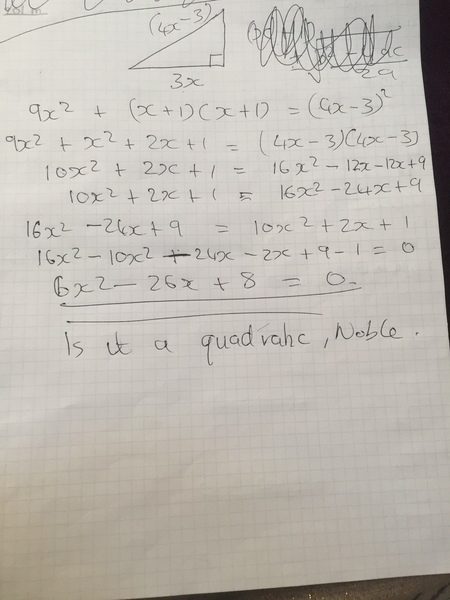 (4x-3)
3x
2a
9x² + (x+1)(x+1) = (4x-3)²
9x² + x² + 2x + 1 = (4x-3)(4x-3)
10x² + 2x + 1 = 16x² - 12x - 12x + 9
10x² + 2x + 1 = 16x² - 24x + 9
16x² - 24x + 9 = 10x² + 2x + 1
16x² - 10x² - 24x - 2x + 9 - 1 = 0
6x² - 26x + 8 = 0.
Is it a quadratic, Noble.